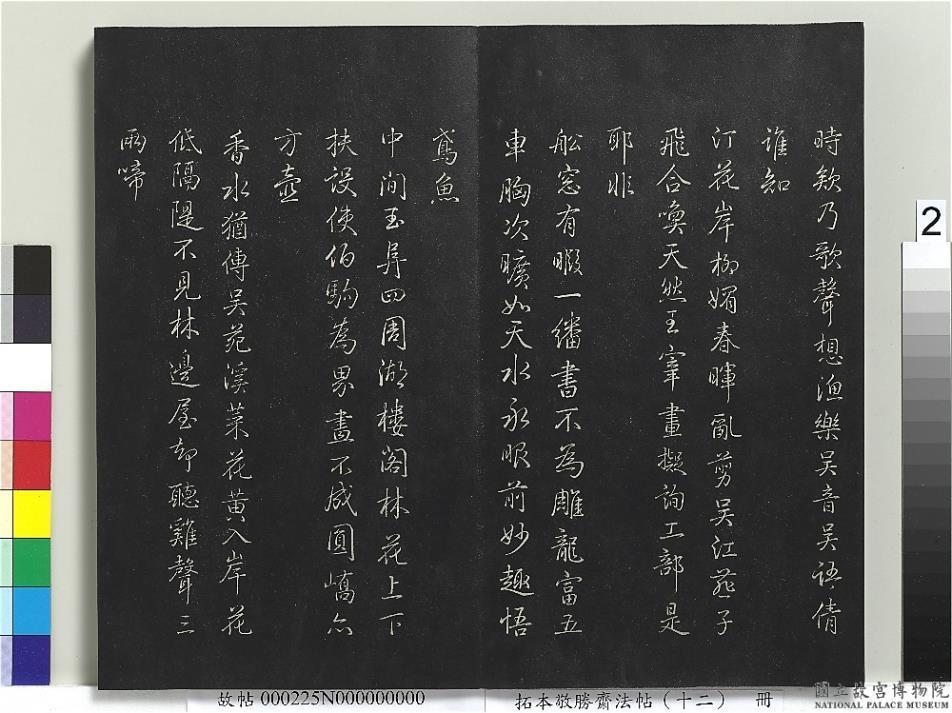 時欸乃歌聲想漁樂吳音吳語倩
誰知
汀花岸柳媚春暉亂剪吳江燕子
飛合喚天然王宰畫擬詢工部是
耶非
船窓有暇一繙書不為雕龍富五
車胸次曠如天水永眼前妙趣悟
鳶魚
中間玉㠀四周湖樓閣林花上下
扶設使伯駒為界畫不成圓嶠亦
方壺
香水猶傳吳苑溪菜花黃入岸花
低隔隄不見林邊屋却聽雞聲三
兩啼
2
故帖 000225N000000000
拓本敬勝齋法帖（十二） 冊
國立故宮博物院
NATIONAL PALACE MUSEUM